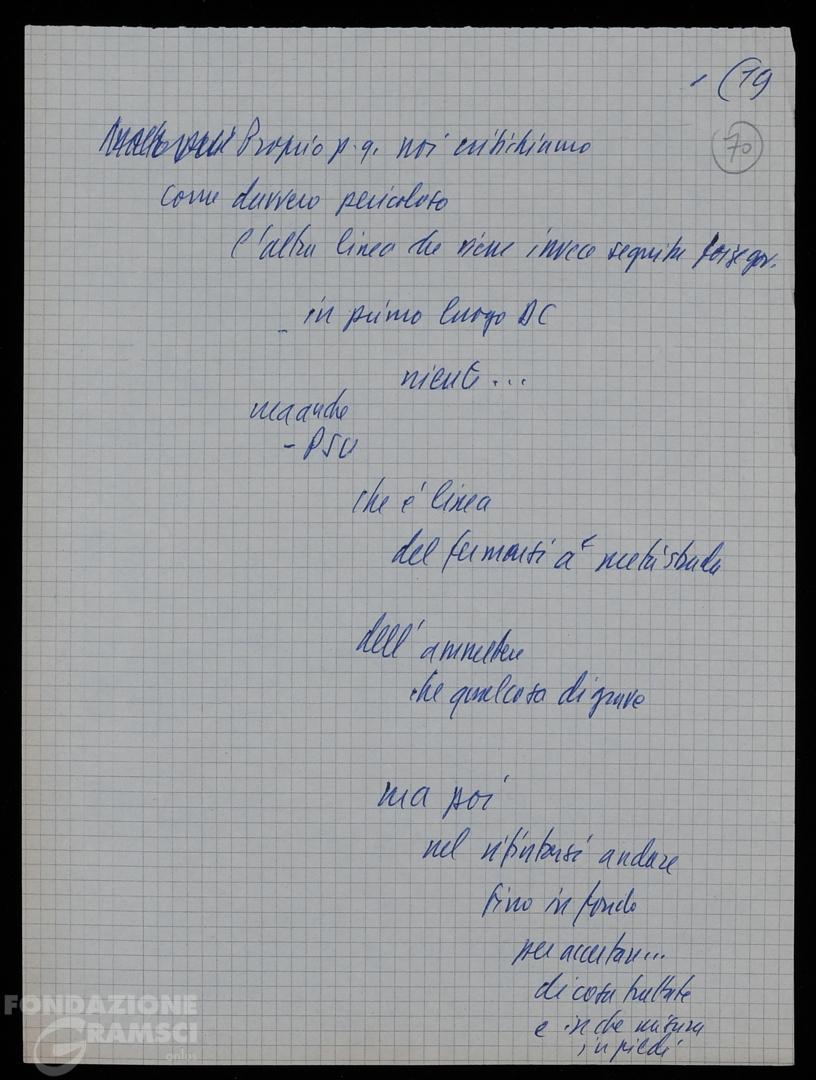 (19
70
Proprio p.q. noi critichiamo
come davvero pericolosa
l'altra linea che viene invece seguita
in primo luogo DC
niente...
ma anche
- PSU
che è linea
del fermarsi a metà strada
dell'ammettere
che qualcosa di grave
ma poi
nel rifiutarsi andare
fino in fondo
per accertare...
di cosa trattate
e in che misura
in piedi
FONDAZIONE
GRAMSCI
onlus